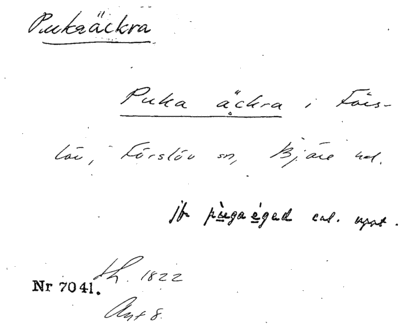 Pukaäckra
Puka äckra i Förs-
löv, Förslöv sn, Bjäre hd.
jfr pùgaègad enl. uppt.
Nr 7041. Lh. 1822
Ant 8.